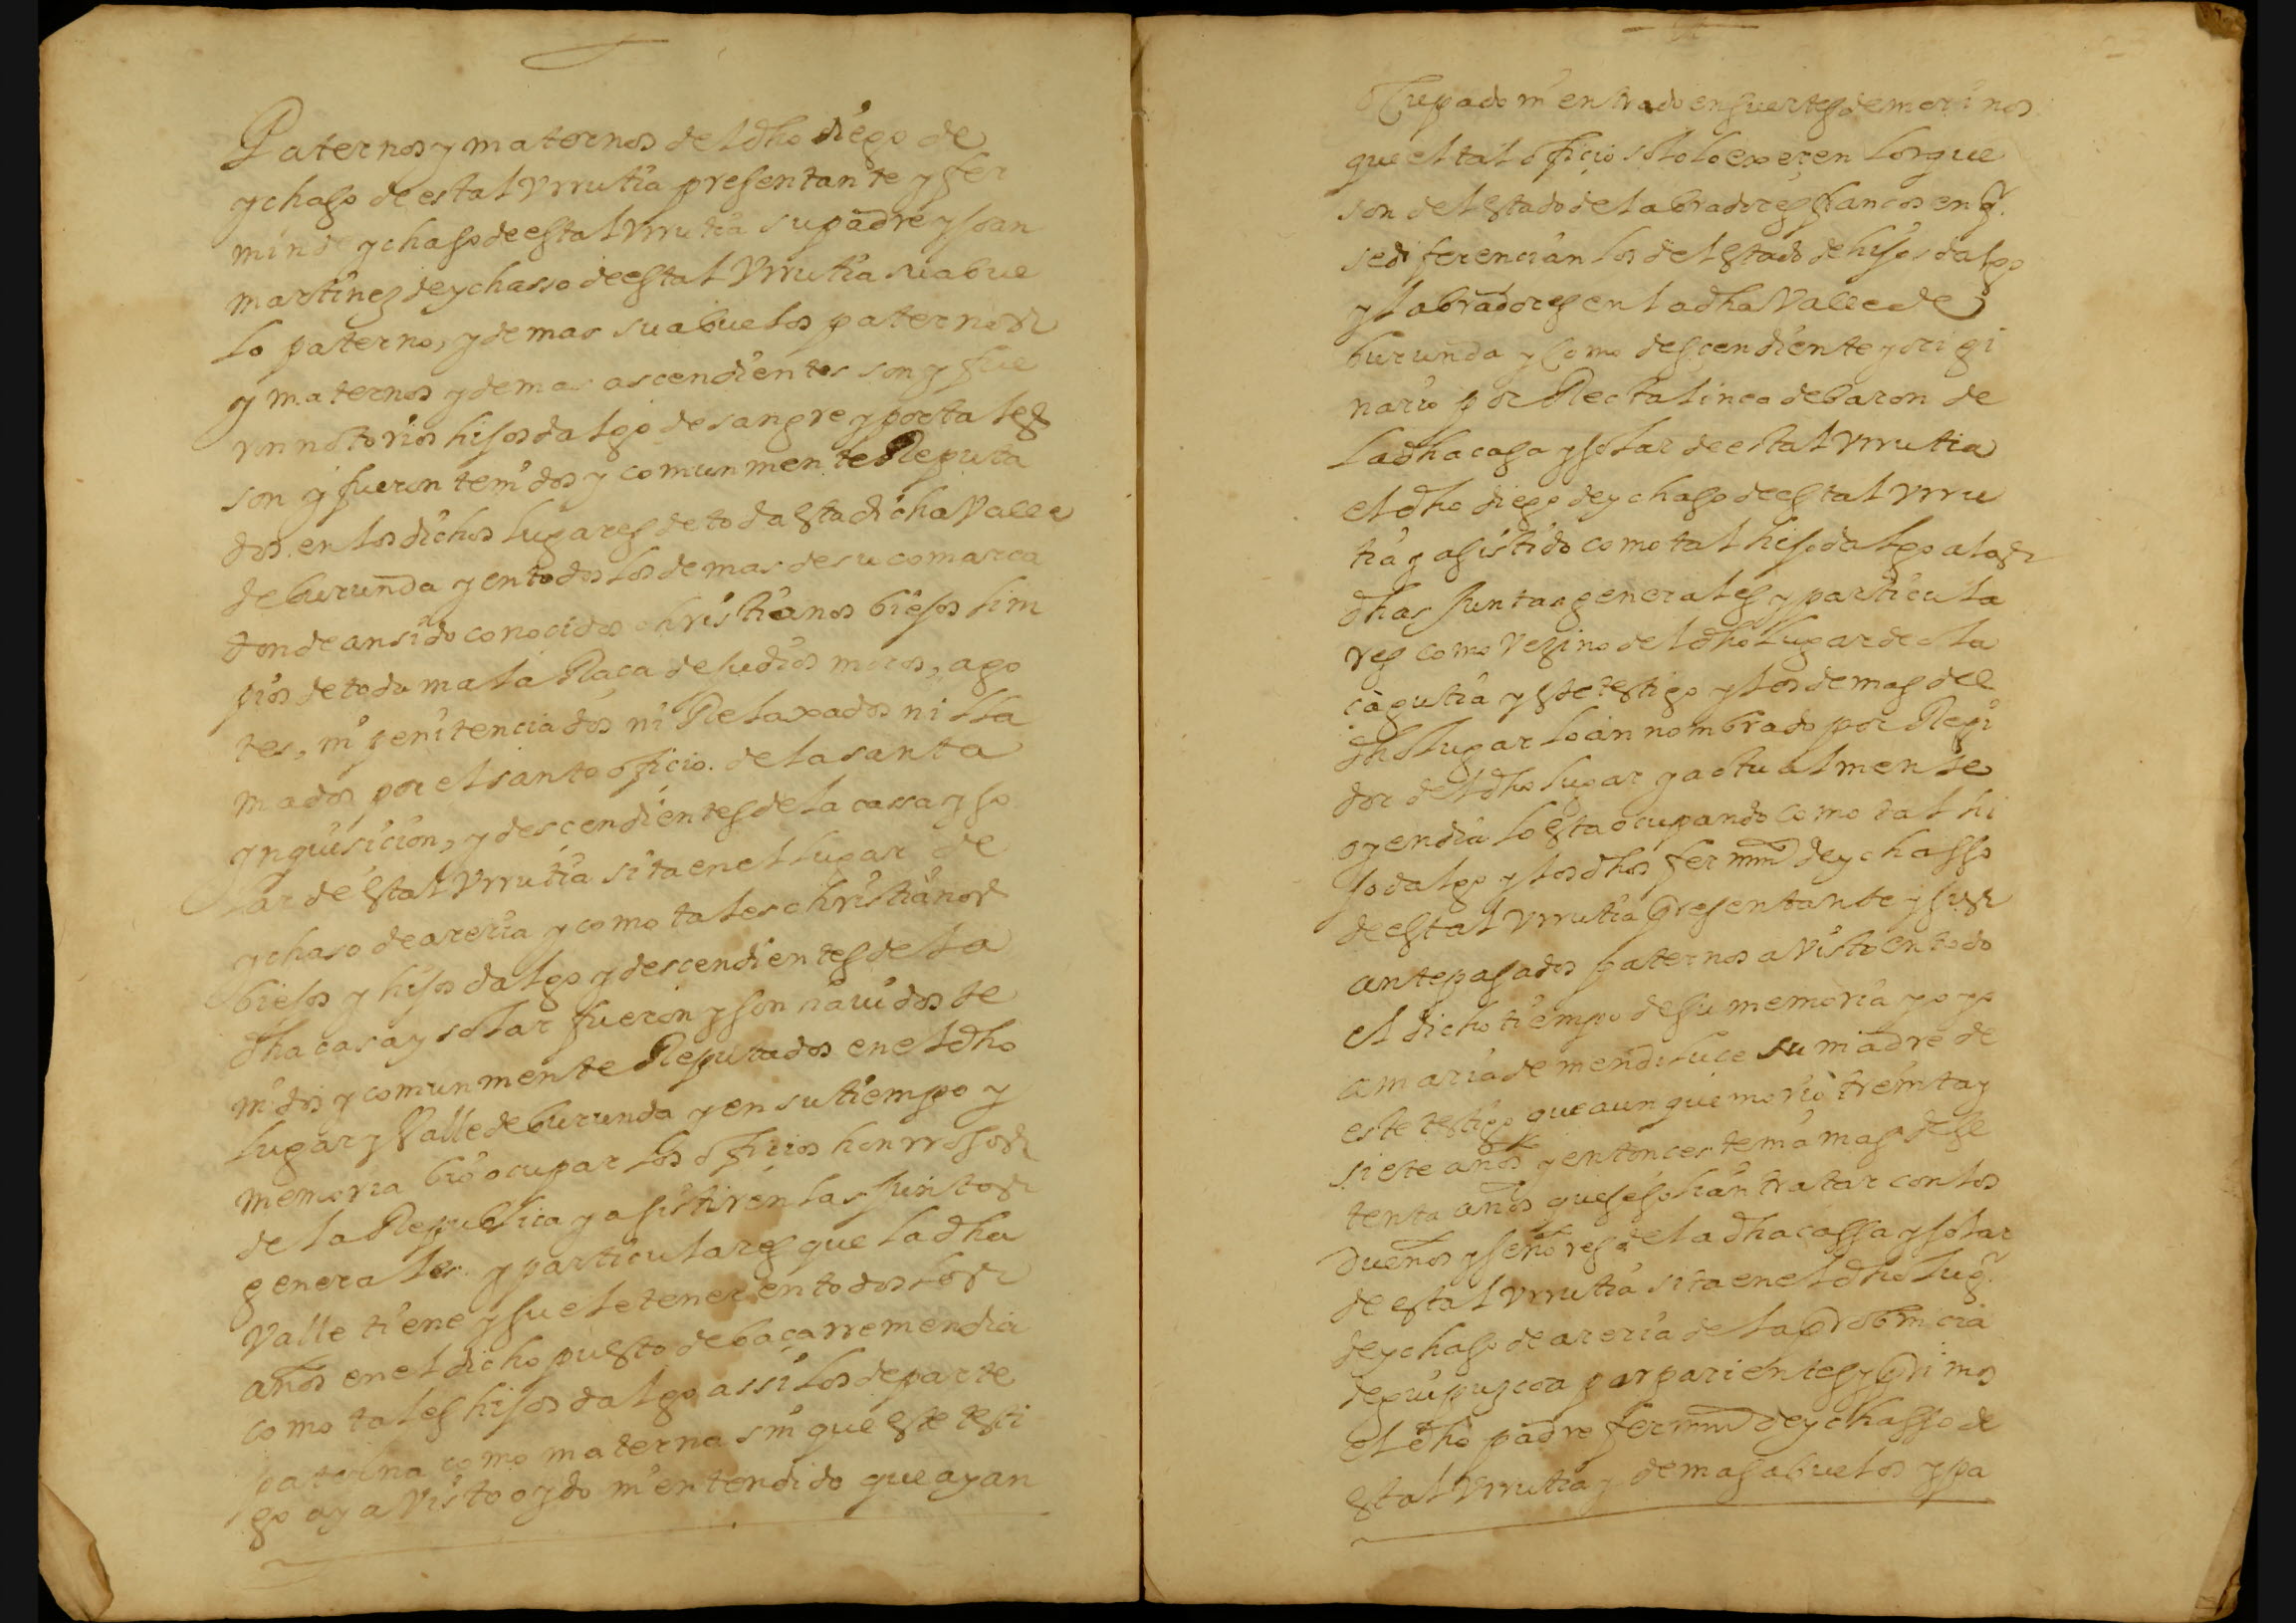 Paternos y maternos del dho diego de
ychaso de estal Vrrutia presentante y fer
min de ychaso de estal Vrrutia su padre y Joan
martinez de ychasso de estal Vrrutia su abue
lo paterno, y demas su abuelos paternos
y maternos y demas ascendientes son y fue
ron notorios hijosdalgo de sangre y por tales
son y fueron tenidos y comunmente Reputa
dos en los dichos lugares de toda esta dicha Valle
de burunda y en todos los demas de su comarca
donde an sido conocidos christianos biejos lim
pios de toda mala Raça de Judios moros, ago
tes, ni penitenciados ni Relaxados ni lla
mados por el santo officio de la santa
ynquisicion, y descendientes de la cassa y so
lar de estal Vrrutia sita en el lugar de
ychaso de areria y como tales christianos
biejos y hijosdalgo y descendientes de la
dha casa y solar fueron y son hauidos te
nidos y comunmente Reputados en el dho
lugar y Valle de burunda y en su tiempo y
memoria bio ocupar los officios honrrosos
de la Republica y asistir en las Juntas
generales y particulares que la dha
Valle tiene y suele tener en todos los
años en el dicho puesto de baçarremendia
como tales hijosdalgo assi los de parte
paterna como materna sin que este testi
go aya visto oydo ni entendido que ayan
ocupado ni entrado en suertes de merinos
que el tal officio solo lo exercen los que
son del estado de labradores francos en q.
se diferencian los del estado de hijosdalgo
y labradores en la dha Valle de
burunda y como descendiente y origi
nario por Recta linea de baron de
la dha casa y solar de estal Vrrutia
el dho diego de ychaso de estal Vrru
tia y asistido como tal hijodalgo a las
dhas Juntas generales y particula
res como vezino del dho lugar de ola
çagutia y este testigo y los demas del
dho lugar lo an nombrado por Regi
dor del dho lugar y actualmente
oy en dia lo esta ocupando como tal hi
jodalgo y los dhos fermin de ychasso
de estal Vrrutia presentante y sus
antepasados paternos a visto en todo
el dicho tiempo de su memoria y oyo
a maria de mendiluce su madre de
este testigo que aunque murio treinta y
siete años y entonces tenia mas de se
tenta años que se solian tratar con los
Dueños y señores de la dha cassa y solar
de estal Vrrutia sita en el dho lug.
de ychaso de areria de la probincia
de guipuzcoa por parientes y primos
el dho padre fermin de ychasso de
estal Vrrutia y demas abuelos y pa